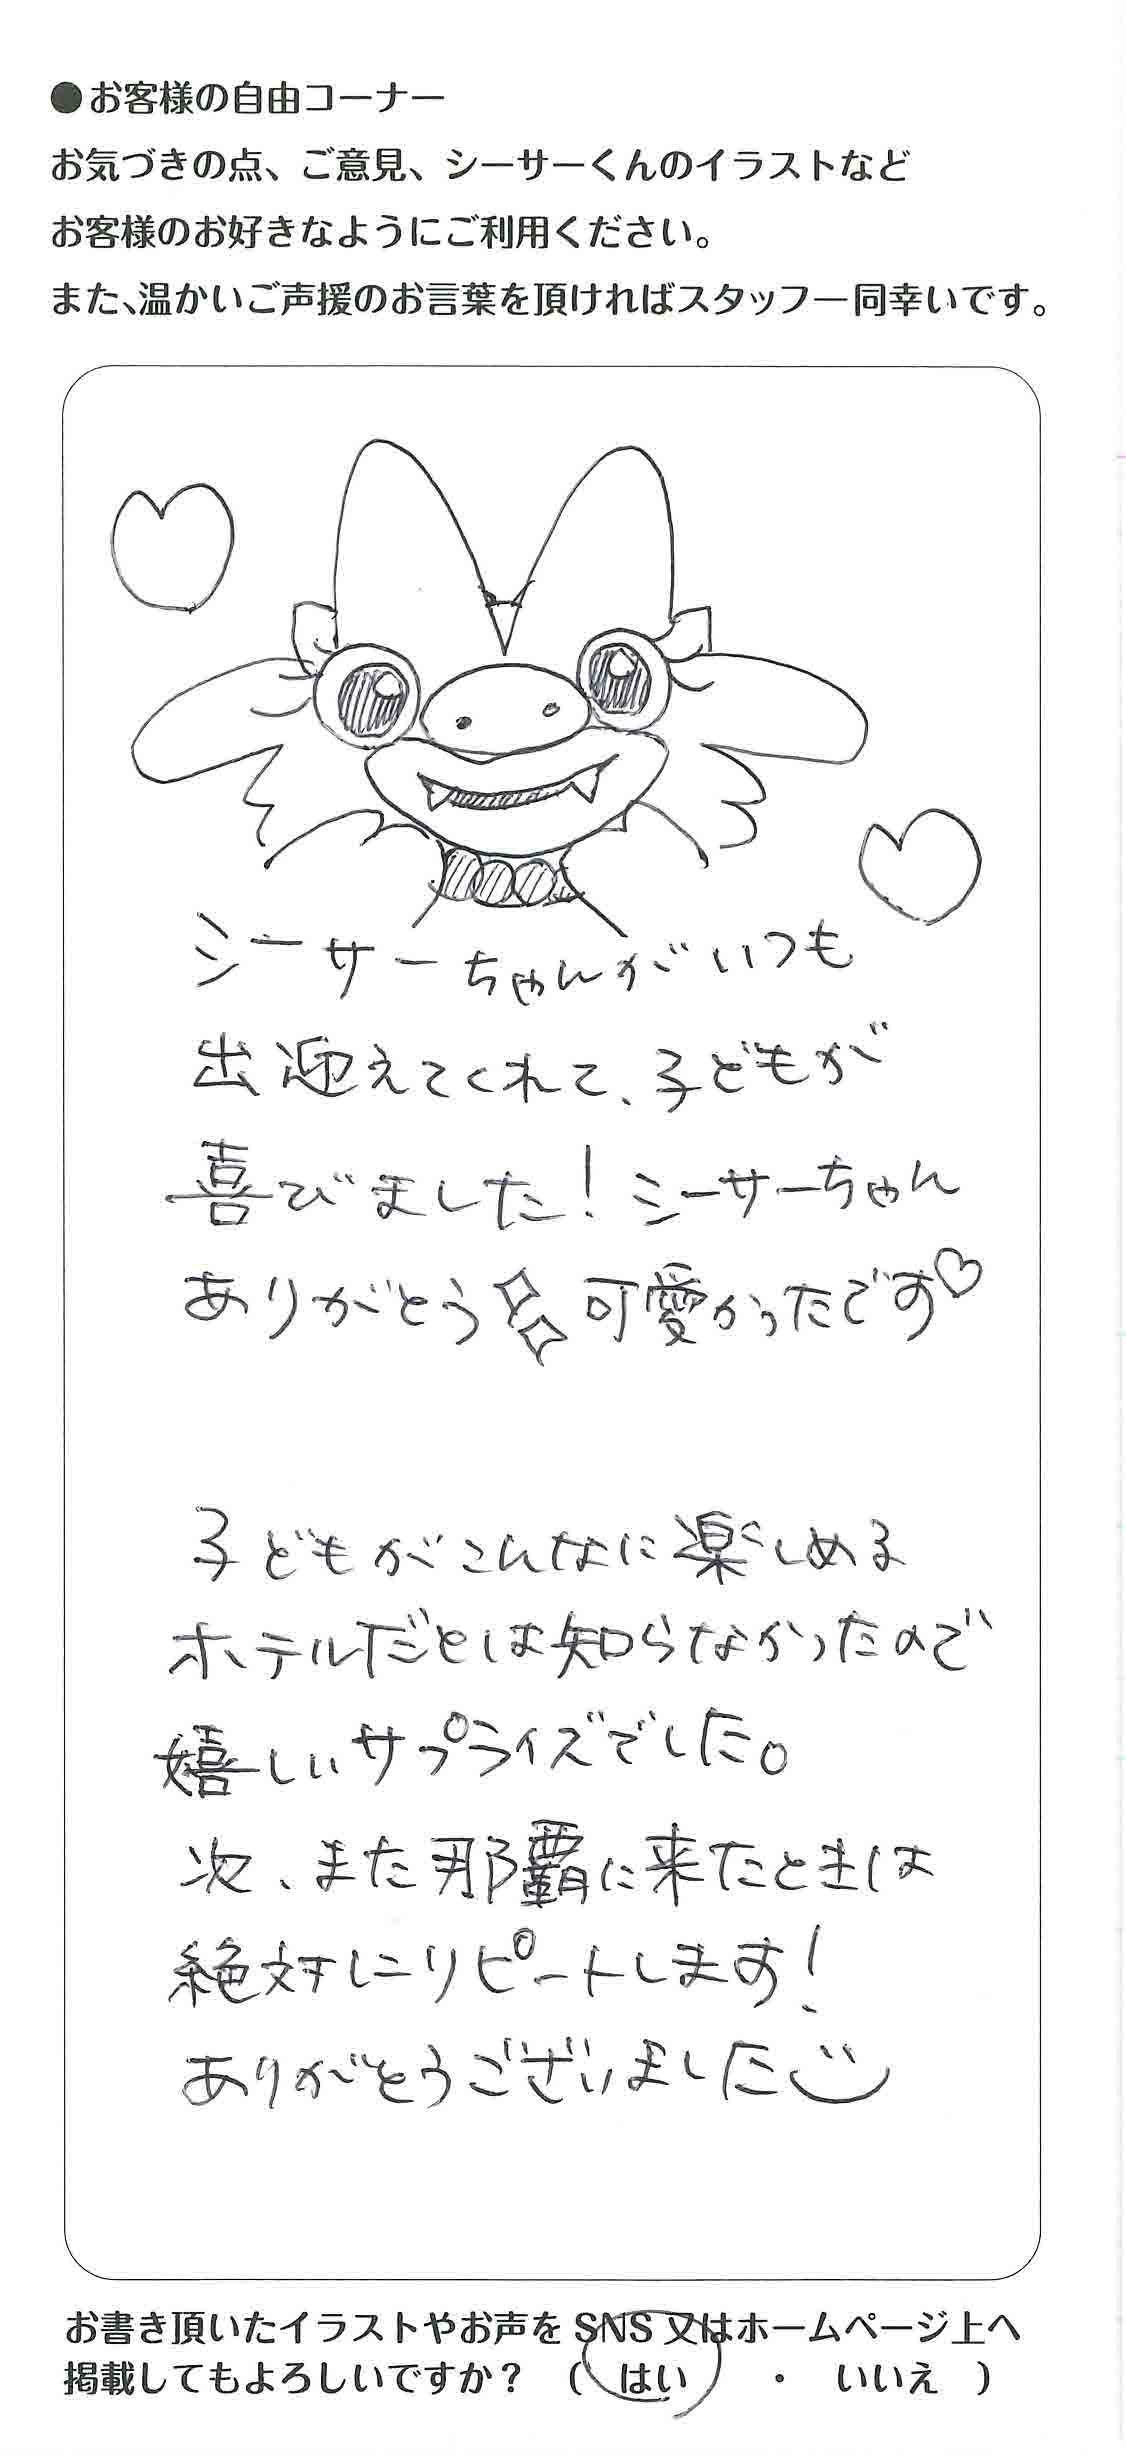 ●お客様の自由コーナー
お気づきの点、ご意見、シーサーくんのイラストなど
お客様のお好きなようにご利用ください。
また、温かいご声援のお言葉を頂ければスタッフ一同幸いです。
シーサーちゃんがいつも
出迎えてくれて、子どもが
喜びました！シーサーちゃん
ありがとう 可愛かったです♡
子どもがこんなに楽しめる
ホテルだとは知らなかったので
嬉しいサプライズでした。
次、また那覇に来たときは
絶対にリピートします！
ありがとうございました
お書き頂いたイラストやお声をSNS又はホームページ上へ
掲載してもよろしいですか？ （ はい ・ いいえ ）